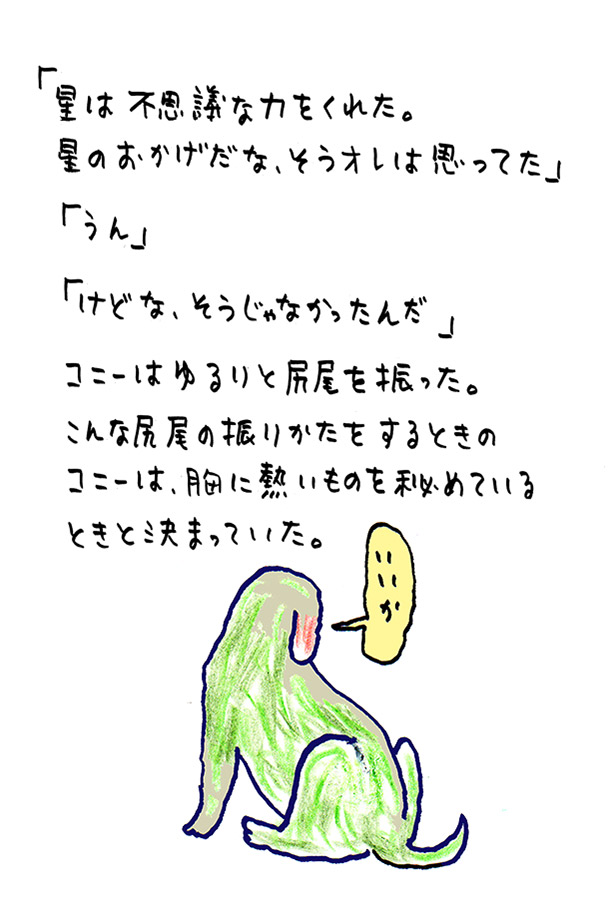 「星は不思議な力をくれた。
星のおかげだな、そうオレは思ってた」
「うん」
「けどな、そうじゃなかったんだ」
コニーはゆるりと尻尾を振った。
こんな尻尾の振りかたをするときの
コニーは、胸に熱いものを秘めている
ときと決まっていた。
いいか